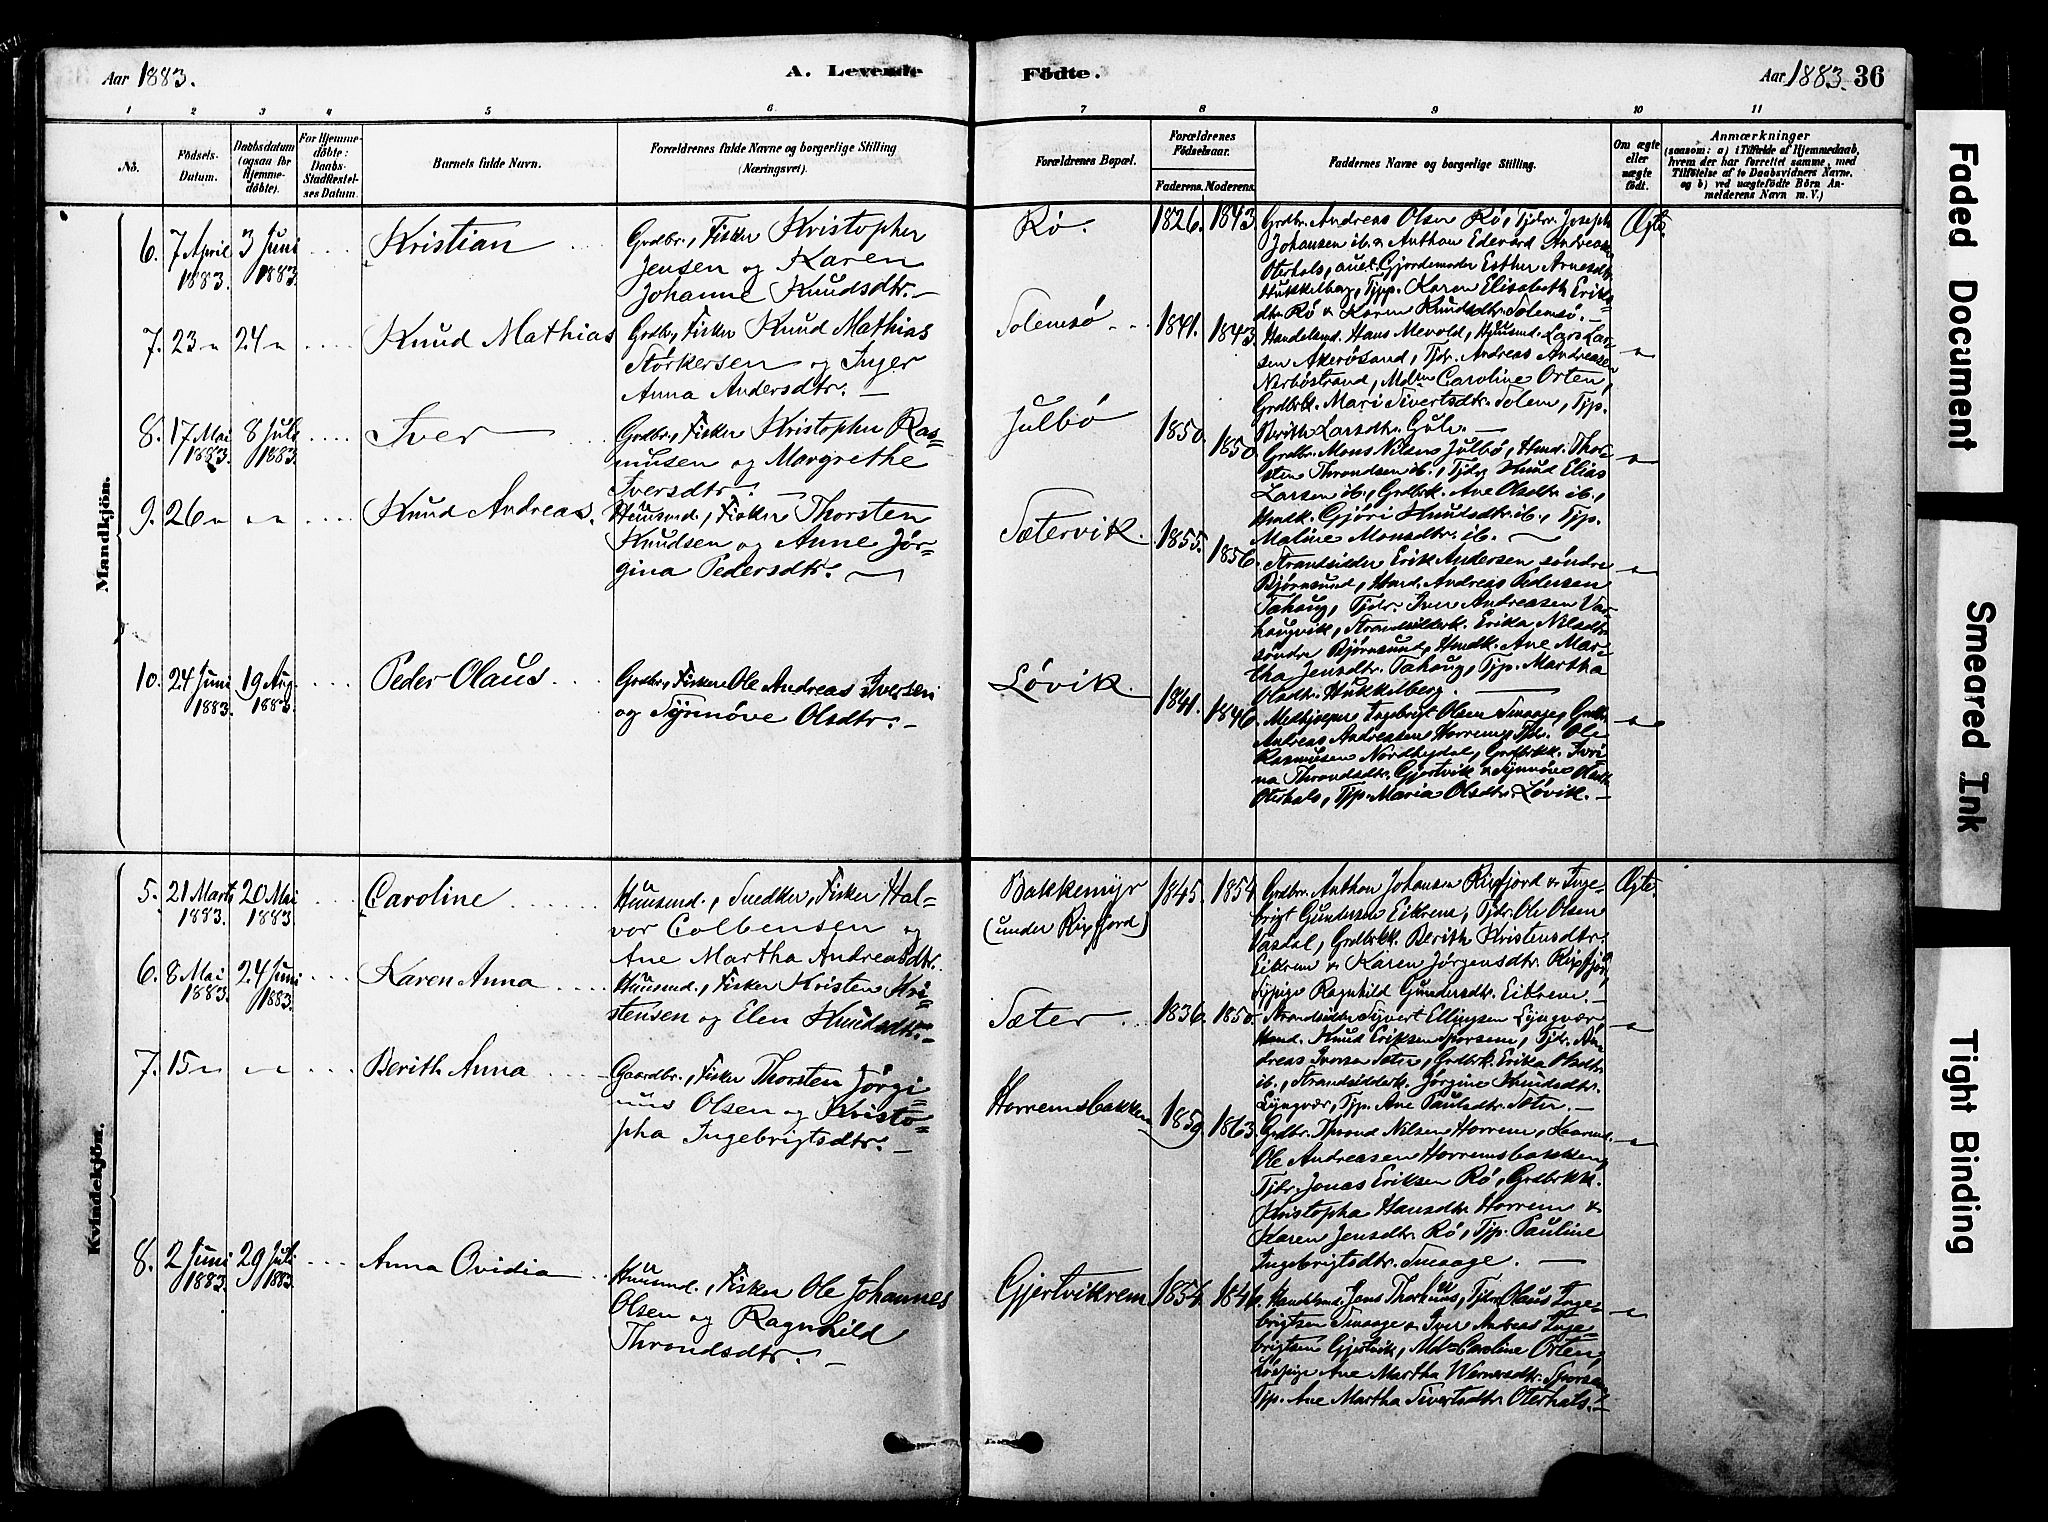 Aar 1883.
A. Levende
Födte.
Aar 1883. 36
1 2 3 4 5 6 7 8 9 10 11
No.
Födsels-
Datum.
Daabsdatum
(ogsaa for
Hjemme-
döbte).
For Hjemme-
döbte:
Daabs-
Stadfæstel-
ses Datum.
Barnets fulde Navn.
Forældrenes fulde Navne og borgerlige Stilling
(Næringsvei).
Forældrenes Bopæl.
Forældrenes
Födselsaar.
Faderens. Moderens.
Faddernes Navne og borgerlige Stilling.
Om ægte
eller
uægte
födt.
Anmærkninger
(saasom: a) i Tilfælde af Hjemmedaab,
hvem der har forrettet samme, med
Tilföielse af to Daabsvidners Navne,
og b) ved uægtefödte Börn An-
melderens Navn m. V.)
Mandkjön.
6. 7 April 1883. 3 Juni 1883.
Kristian
Grdbr., Fisker Kristopher
Jensen og Karen
Johanne Knudsdtr. —
Rø.
1826. 1843.
Grdbr. Andreas Olsen Rø, Tjdr. Joseph
Johansen ib. & Anthon Edevard Andreasen
Oterhals, auct. Gjordemoder Esther Arnesdtr.
Hukkelberg, Tjp. Karen Elisabeth Eriks
dtr. Rø & Karen Knudsdtr. Solemsø. —
Ægte.
7. 23 " 24 "
Knud Mathias
Grdbr., Fisker Knud Mathias
Storkersen og Inger
Anna Andersdtr. —
Solemsø
1841. 1843.
Handelsmd. Hans Mevold, Huusmd. Lars Lar-
sen Akerøsund, Tjdr. Andreas Andreasen
Nerbøstrand, Mdm Caroline Orten,
Grdbrk. Mari Sivertsdtr. Solem, Tjp.
Berith Larsdtr. Gule. —
"
8. 17 Mai 1883. 8 Juli 1883.
Iver
Grdbr., Fisker Kristopher Ras-
musen og Margrethe
Iversdtr. —
Julbø
1850. 1850.
Grdbr. Mons Nilsen Julbø, Hmd. Thor-
sten Throndsen ib., Tjdr. Knud Elias
Larsen ib., Grdbrk. Ane Olsdtr. ib.,
Hmdk. Gjøri Knudsdtr. ib., Tjp.
Maline Monsdtr. ib. —
"
9. 26 " "
Knud Andreas.
Huusmd., Fisker Thorsten
Knudsen og Anne Jør-
gina Pedersdtr. —
Sætervik.
1855. 1856.
Strandsidder Erik Andersen søndre
Bjørnsund, Hmd. Andreas Pedersen
Tahaug, Tjdr. Iver Andreasen Var-
haugvik, Strandsidderk. Erika Nilsdtr.
søndre Bjørnsund, Hmdk. Ane Mar-
tha Jensdtr. Tahaug, Tjp. Martha
Olsdtr. Hukkelberg. —
"
10. 24 Juni 1883. 19 Aug. 1883.
Peder Olaus
Grdbr., Fisker Ole Andreas Iversen
og Synnøve Olsdtr. —
Løvik.
1841. 1846.
Medhjælper Ingebrigt Olsen Smaage, Grdbr.
Andreas Andreasen Horrem, Tjdr. Ole
Rasmusen Nordheydal, Grdbrkk. Iveri-
na Throndsdtr. Gjertvik & Synnøve Olsdtr.
Oterhals, Tjp. Maria Olsdtr. Løvik. —
"
Kvindekjön.
5. 21 Marts 1883. 20 Mai 1883
Caroline
Huusmd., Snedker, Fisker Hal-
vor Colbensen og
Ane Martha Andreasdtr.
Bakkemyr
(under Rixfjord)
1845. 1854.
Grdbr. Anthon Johansen Rixfjord & Inge-
brigt Gundersen Eikrem, Tjdr. Ole Olsen
Vasdal, Grdbrkk. Berith Kristensdtr.
Eikrem & Karen Jørgensdtr. Rixfjord,
Tjpige Ragnhild Gundersdtr. Eikrem. —
Ægte.
6. 8 Mai 1883. 24 Juni 1883.
Karen Anna
Huusmd., Fisker Kristen Kri-
stensen og Elen Knudsdtr. —
Sæter
1836. 1850.
Strandsidder Syvert Ellingsen Lyngvær,
Hmd. Knud Eriksen Sporsem, Tjdr. An-
dreas Iversen Sæter, Grdbrk. Erika Olsdtr.
ib., Strandsidderk. Jørgine Knudsdtr.
Lyngvær, Tjp. Ane Paulsdtr. Sæter. —
"
7. 15 " "
Berith Anna
Gaardbr., Fisker Thorsten Jørgi-
nus Olsen og Kristo-
pha Ingebrigtsdtr. —
Horremsbakken
1859 1863.
Grdbr. Thrond Nilsen Horrem, Huusmd.
Ole Andreasen Horremsbakken,
Tjdr. Jonas Eriksen Rø, Grdbrkk.
Kristopha Hansdtr. Horrem &
Karen Jensdtr. Rø, Tjp. Pauline
Ingebrigtsdtr. Smaage. —
"
8. 2 Juni 1883. 29 Juli 1883.
Anna Ovidia
Huusmd., Fisker Ole Johannes
Olsen og Ragnhild
Throndsdtr. —
Gjertvikrem
1854. 1846.
Handelsmd. Jens Thorhuus, Tjdr. Olaus Inge-
brigtsen Smaage & Iver Andreas Inge-
brigtsen Gjertvik, Mdm Caroline Orten,
Løspige Ane Martha Wernersdtr. Sporsem,
Tjp. Ane Martha Sivertsdtr. Oterhals. —
"
Faded Document
Smeared Ink
Tight Binding